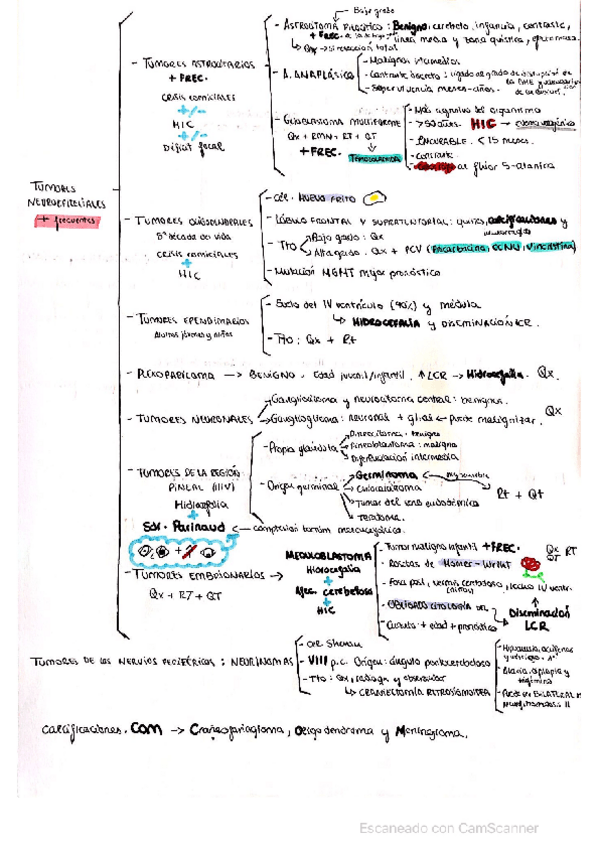 Bajo grado
- ASTROCITOMA PILOCÍTICO : Benigno, cerebelo, infancia, contraste,
+ Frec. línea media y zona quística,
Qx → Si resección total
- TUMORES ASTROCITARIOS
+ FREC.
CRISIS COMICIALES
+/-
HIC
+/-
Déficit focal
- A. ANAPLÁSICO
- Malignos
- Contraste discreto : ligado al grado de disrupción de la BHE
- Supervivencia meses-años.
- GLIOBLASTOMA MULTIFORME
Qx + RMN + RT + QT
+ FREC.
Temozolamida
- Más agresivo del organismo
- > 50 años. HIC →
- INCURABLE. < 15 meses.
- Contraste
- al flúor 5-alanina
TUMORES
NEUROEPITELIALES
+ frecuentes
- TUMORES OLIGODENDRALES
5ª década de vida
CRISIS comiciales
+
HIC
- Cél. HUEVO FRITO
- LÓBULO FRONTAL Y SUPRATENTORIAL : quistes, calcificaciones y
- Tto
Bajo grado : Qx
Alto grado : Qx + PCV (Procarbacina, CCNU, Vincristina)
- Mutación MGMT mejor pronóstico
- TUMORES EPENDIMARIOS
Adultos jóvenes y niños
- Suelo del IV ventrículo (90%) y médula
→ HIDROCEFALIA y DISEMINACIÓN LCR.
- Tto : Qx + Rt
- PLEXOPAPILOMA → BENIGNO. Edad juvenil/infantil. ↑ LCR → Hidrocefalia. Qx.
- TUMORES NEURONALES
Gangliocitoma y neurocitoma central : benignos.
Ganglioglioma : neuronas + glías ← puede malignizar.
Qx
- TUMORES DE LA REGIÓN
PINEAL (IIIV)
Hidrocefalia
+
Sdr. Parinaud ← compresión
- Propia glándula
Pineocitoma - benigno
Pineoblastoma : maligno
Diferenciación intermedia
- Origen germinal
Germinoma
Coriocarcinoma
Tumor del seno endodérmico
TERATOMA.
Rt + Qt
- TUMORES EMBRIONARIOS →
Qx + RT + QT
MEDULOBLASTOMA
Hidrocefalia
+
Afec. cerebelosa
+
HIC
- Tumor maligno infantil + FREC.
Qx
QT RT
- Rosetas de Homer - Wright
- Fosa post, vermis cerebeloso, techo IV ventr.
(niños)
- OBLIGADO CITOLOGÍA DEL
Diseminación
LCR
- Cuanto + edad + pronóstico
TUMORES DE LOS NERVIOS PERIFÉRICOS : NEURINOMAS
- Cél. Schwan
- VIII p.c. Origen : ángulo pontocerebeloso
- Tto : Qx, radiocir y observar
→ CRANIECTOMÍA RETROSIGMOIDEA
- Hipoacusia, acúfenos
y vértigo.
- Ataxia,
- Puede ser BILATERAL
Calcificaciones. COM → Craneofaringioma, Oligodendroma y Meningioma.
Escaneado con CamScanner